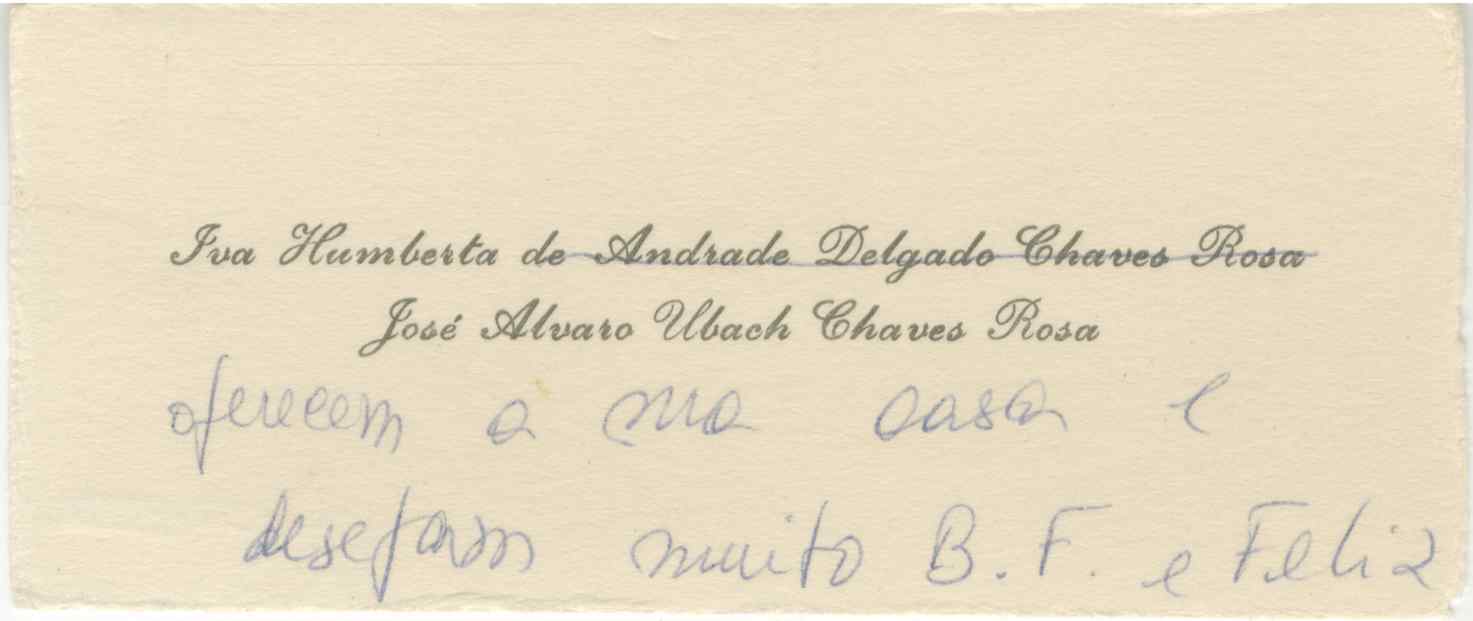 Iva Humberta de Andrade Delgado Chaves Rosa
José Alvaro Ubach Chaves Rosa
oferecem a sua casa e
desejam muito B. F. e Feliz